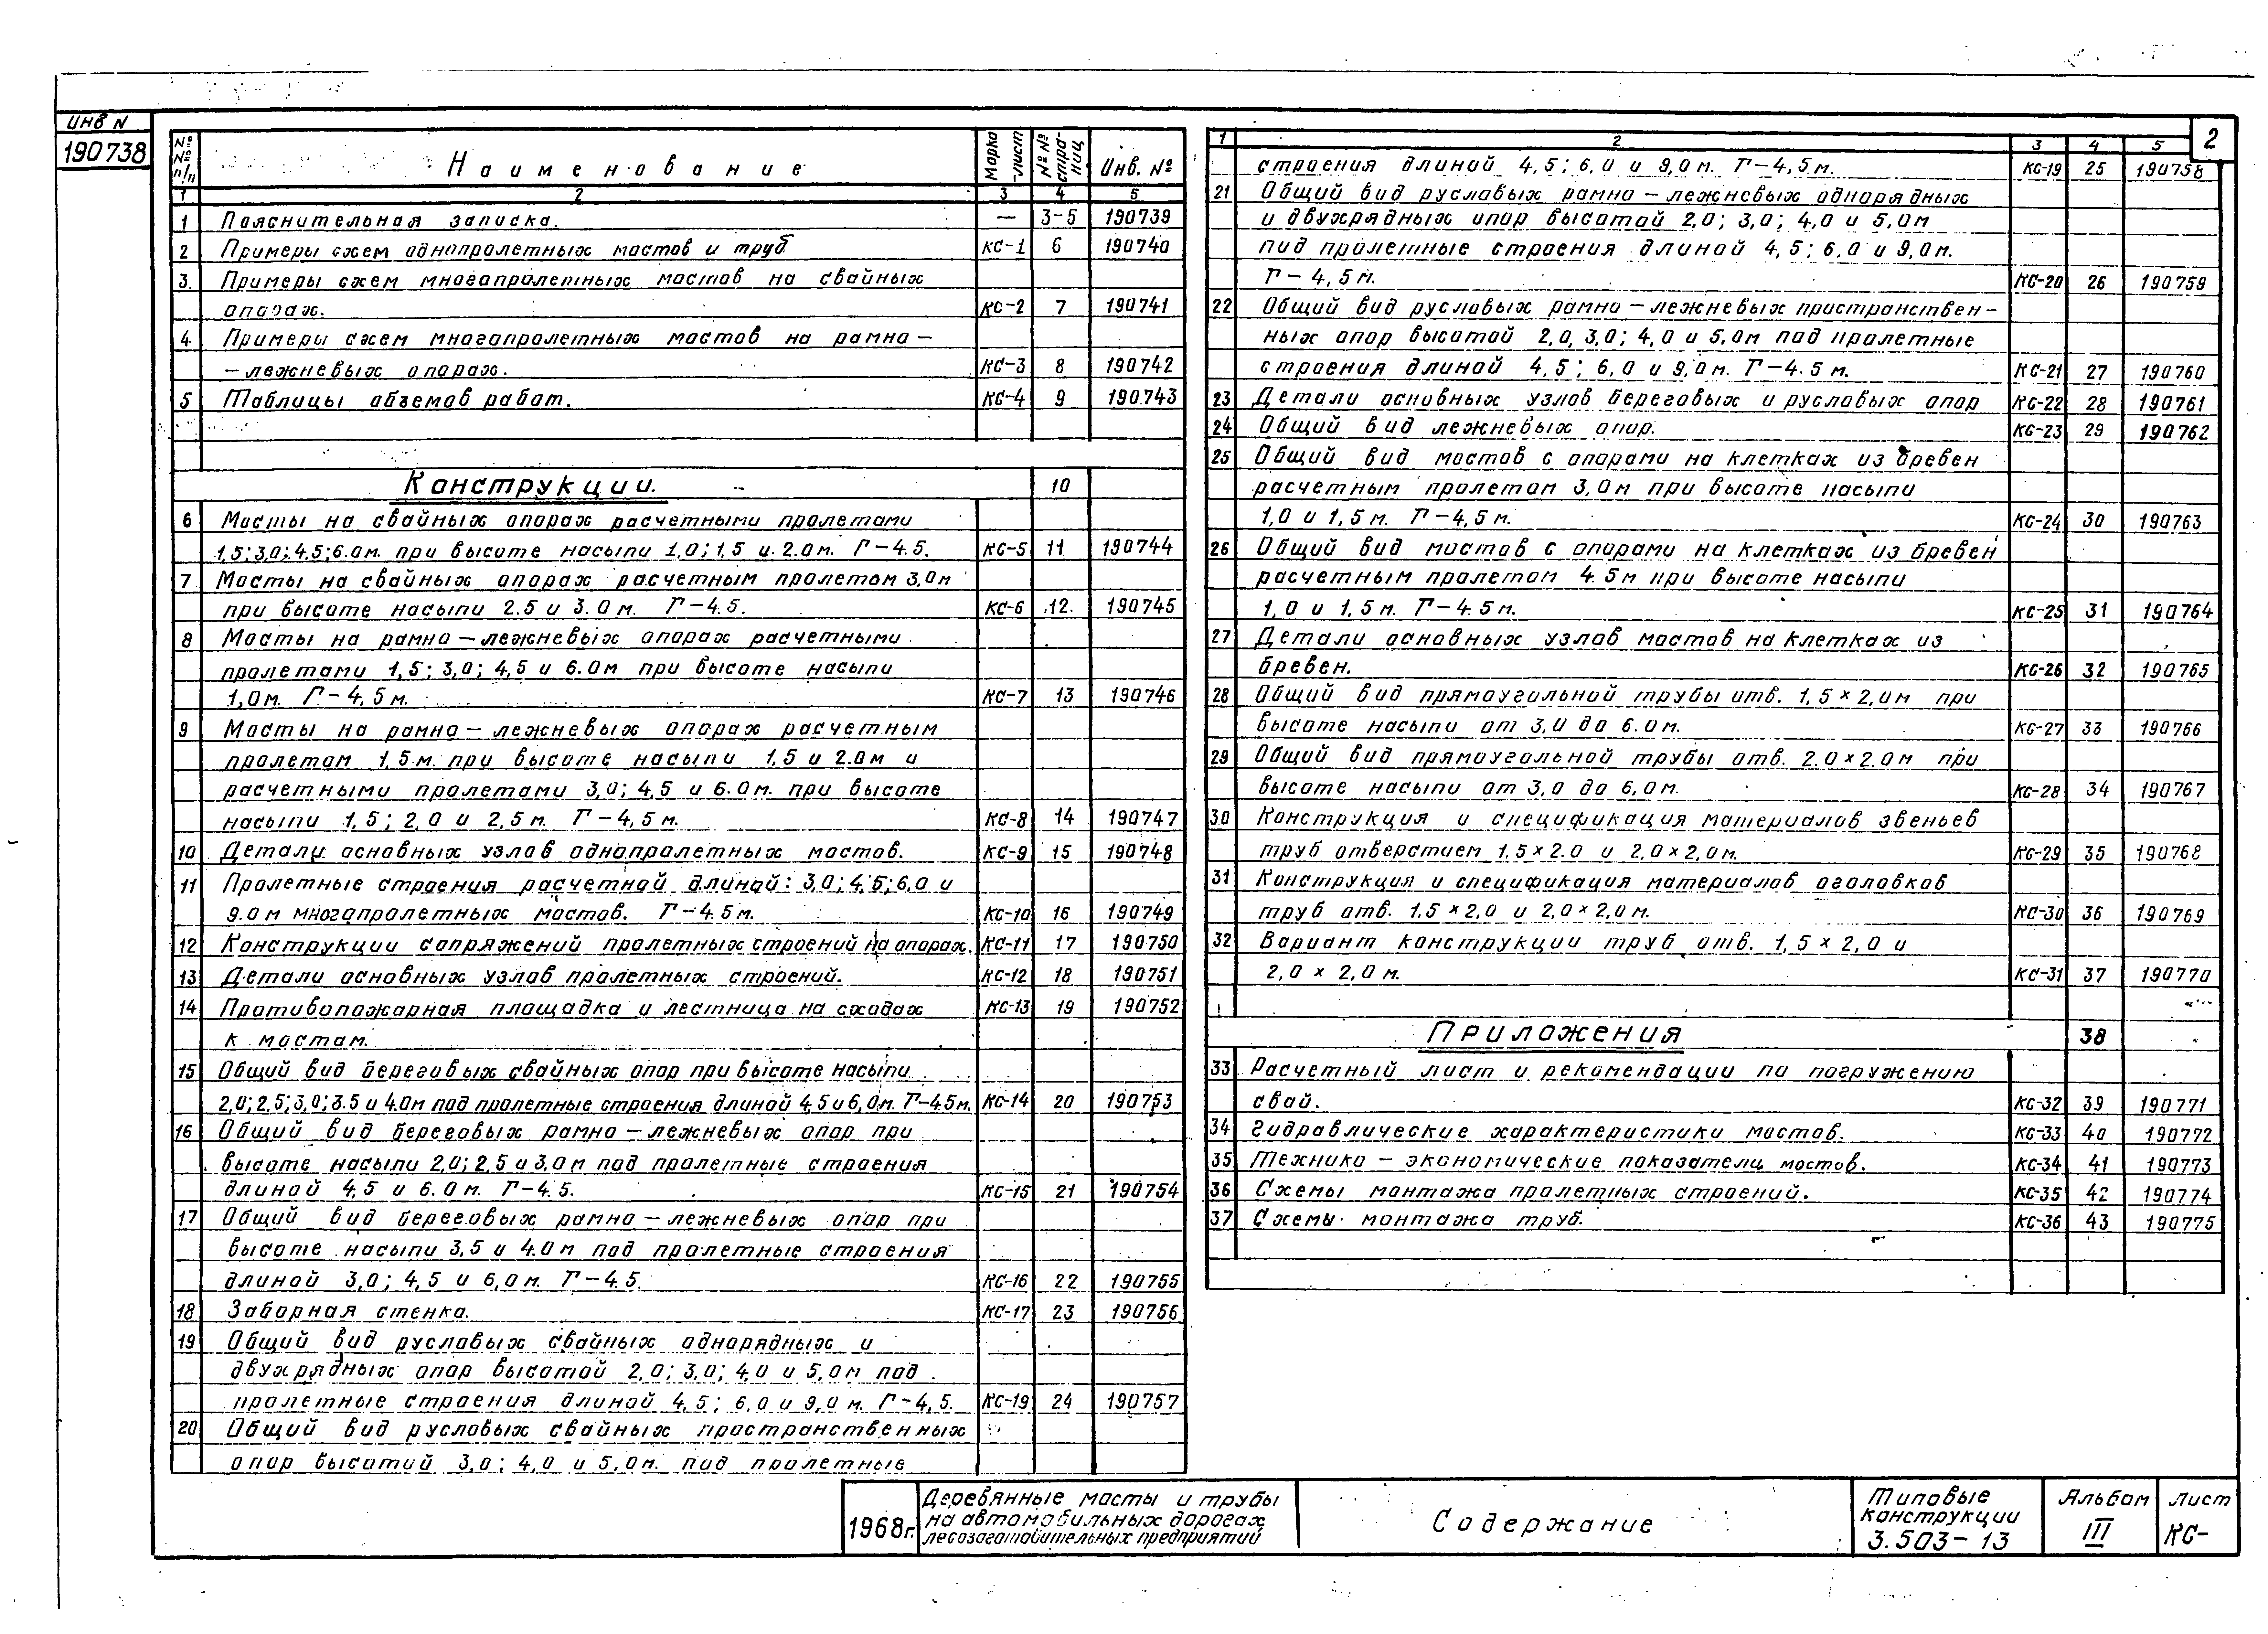 Инв N
190738
2
№№ п/п Наименование Марка-лист №№ страниц Инв. №
1 2 3 4 5
1 Пояснительная записка. — 3-5 190739
2 Примеры схем однопролетных мостов и труб КС-1 6 190740
3. Примеры схем многопролетных мостов на свайных
опорах. КС-2 7 190741
4 Примеры схем многопролетных мостов на рамно-
-лежневых опорах. КС-3 8 190742
5 Таблицы объемов работ. КС-4 9 190743
Конструкции. 10
6 Мосты на свайных опорах расчетными пролетами
1,5; 3,0; 4,5; 6.0м. при высоте насыпи 1,0; 1,5 и 2.0м. Г-4.5. КС-5 11 190744
7 Мосты на свайных опорах расчетным пролетом 3,0м
при высоте насыпи 2.5 и 3.0м. Г-4.5. КС-6 12. 190745
8 Мосты на рамно-лежневых опорах расчетными
пролетами 1,5; 3,0; 4,5 и 6.0м при высоте насыпи
1,0м. Г-4,5м. КС-7 13 190746
9 Мосты на рамно-лежневых опорах расчетным
пролетом 1,5м. при высоте насыпи 1,5 и 2.0м и
расчетными пролетами 3,0; 4,5 и 6.0м. при высоте
насыпи 1,5; 2,0 и 2,5м. Г-4,5м. КС-8 14 190747
10 Детали основных узлов однопролетных мостов. КС-9 15 190748
11 Пролетные строения расчетной длиной: 3,0; 4,5; 6,0 и
9.0м многопролетных мостов. Г-4.5м. КС-10 16 190749
12 Конструкции сопряжений пролетных строений на опорах. КС-11 17 190750
13 Детали основных узлов пролетных строений. КС-12 18 190751
14 Противопожарная площадка и лестница на сходах КС-13 19 190752
к мостам.
15 Общий вид береговых свайных опор при высоте насыпи
2,0; 2,5; 3,0; 3.5 и 4.0м под пролетные строения длиной 4,5 и 6,0м. Г-4.5м. КС-14 20 190753
16 Общий вид береговых рамно-лежневых опор при
высоте насыпи 2,0; 2,5 и 3,0м под пролетные строения
длиной 4,5 и 6.0м. Г-4.5. КС-15 21 190754
17 Общий вид береговых рамно-лежневых опор при
высоте насыпи 3,5 и 4.0м под пролетные строения
длиной 3,0; 4,5 и 6,0м. Г-4.5. КС-16 22 190755
18 Заборная стенка. КС-17 23 190756
19 Общий вид русловых свайных однорядных и
двухрядных опор высотой 2,0; 3,0; 4,0 и 5,0м под
пролетные строения длиной 4,5; 6,0 и 9,0м. Г-4,5. КС-19 24 190757
20 Общий вид русловых свайных пространственных
опор высотой 3,0; 4,0 и 5,0м. под пролетные
1 2 3 4 5
строения длиной 4,5; 6,0 и 9,0м. Г-4,5м. КС-19 25 190758
21 Общий вид русловых рамно-лежневых однорядных
и двухрядных опор высотой 2,0; 3,0; 4,0 и 5,0м
под пролетные строения длиной 4,5; 6,0 и 9,0м.
Г-4,5м. КС-20 26 190759
22 Общий вид русловых рамно-лежневых пространствен-
ных опор высотой 2,0, 3,0; 4,0 и 5,0м под пролетные
строения длиной 4,5; 6,0 и 9,0м. Г-4.5м. КС-21 27 190760
23 Детали основных узлов береговых и русловых опор КС-22 28 190761
24 Общий вид лежневых опор. КС-23 29 190762
25 Общий вид мостов с опорами на клетках из бревен
расчетным пролетом 3,0м при высоте насыпи
1,0 и 1,5м. Г-4,5м. КС-24 30 190763
26 Общий вид мостов с опорами на клетках из бревен
расчетным пролетом 4.5м при высоте насыпи
1,0 и 1,5м. Г-4.5м. КС-25 31 190764
27 Детали основных узлов мостов на клетках из
бревен. КС-26 32 190765
28 Общий вид прямоугольной трубы отв. 1,5×2,0м при
высоте насыпи от 3,0 до 6.0м. КС-27 33 190766
29 Общий вид прямоугольной трубы отв. 2.0×2.0м при
высоте насыпи от 3,0 до 6,0м. КС-28 34 190767
30 Конструкция и спецификация материалов звеньев
труб отверстием 1,5×2.0 и 2,0×2,0м. КС-29 35 190768
31 Конструкция и спецификация материалов оголовков
труб отв. 1,5×2,0 и 2,0×2,0м. КС-30 36 190769
32 Вариант конструкции труб отв. 1,5×2,0 и
2,0×2,0м. КС-31 37 190770
Приложения 38
33 Расчетный лист и рекомендации по погружению
свай. КС-32 39 190771
34 Гидравлические характеристики мостов. КС-33 40 190772
35 Технико-экономические показатели мостов. КС-34 41 190773
36 Схемы монтажа пролетных строений. КС-35 42 190774
37 Схемы монтажа труб. КС-36 43 190775
1968г. Деревянные мосты и трубы
на автомобильных дорогах
лесозаготовительных предприятий
Содержание
Типовые
конструкции
3.503-13
Альбом
III
Лист
КС-